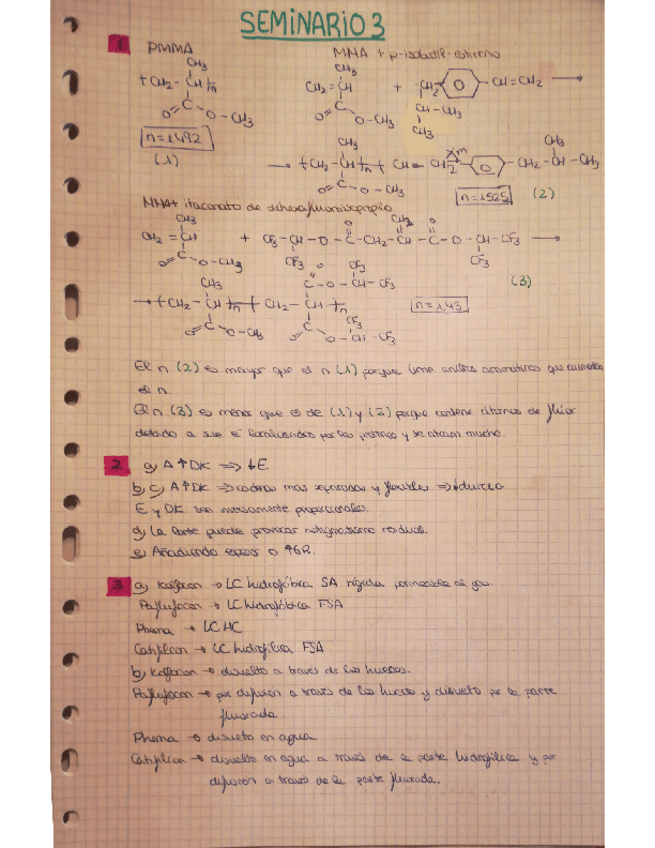 SEMINARIO 3
1 PMMA MMA + p-isobutil-estireno
CH3 CH3
+CH2-CH+n CH2=CH + CH2 CH=CH2
O=C-O-CH3 O=C-O-CH3 CH-CH3
CH3
n=1.492
(1)
CH3 CH3
+CH2-CH+n+CH CH2 CH2-CH-CH3
O=C-O-CH3
n=1525 (2)
MMA + itaconato de
CH3 O CH2 O
CH2=CH + CF3-CH-O-C-CH2-CH-C-O-CH-CF3
O=C-O-CH3 CF3 CF3
(3)
CH3 O CF3
C-O-CH-CF3
+CH2-CH+n+CH2-CH+n n=1.43
O=C-O-CH3 O=C-O-CH-CF3
CF3
El n (2) es mayor que el n (1) porque tiene anillos aromáticos que aumentan
el n.
El n (3) es menor que el de (1) y (2) porque contiene átomos de flúor
debido a que e- por los protones y se atraen mucho.
2 a) A ↑DK ⇒ ↓E
b) c) A ↑DK ⇒ cadenas más espaciosas y flexibles ⇒ ↓dureza
E y DK son inversamente proporcionales.
d) La lente puede provocar astigmatismo residual.
e) Añadiendo espesor o ↑GR.
3 a) Kolfocon → LC hidrofóbica SA rígida permeable al gas.
Paflufocon → LC hidrofóbica FSA
Phema → LC HC
Catifilcon → LC hidrofílica FSA
b) Kolfocon → disuelto a través de los huecos.
Paflufocon → por difusión a través de los huecos y disuelto por la parte
fluorada.
Phema → disuelto en agua
Catifilcon → disuelto en agua a través de la parte hidrofílica y por
difusión a través de la parte fluorada.